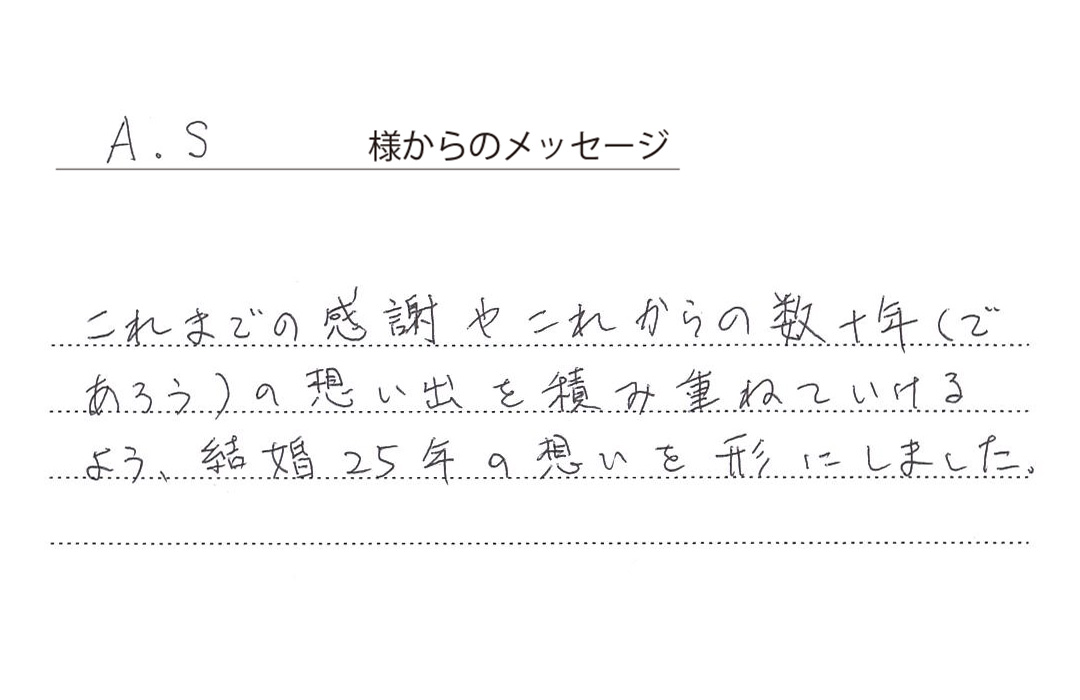 A.S 様からのメッセージ
これまでの感謝やこれからの数十年(で
あろう)の想い出を積み重ねていける
よう、結婚25年の想いを形にしました。